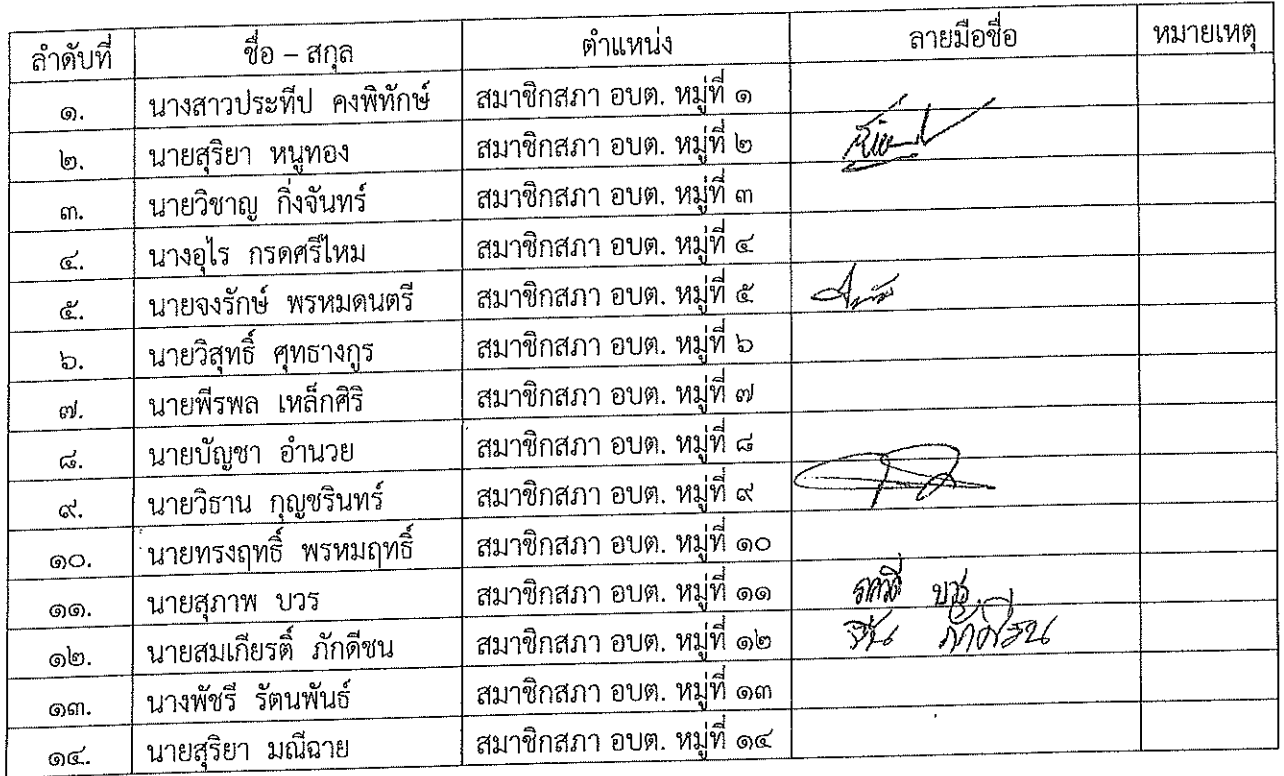 ลำดับที่ ชื่อ – สกุล ตำแหน่ง ลายมือชื่อ หมายเหตุ
๑. นางสาวประทีป คงพิทักษ์ สมาชิกสภา อบต. หมู่ที่ ๑
๒. นายสุริยา หนูทอง สมาชิกสภา อบต. หมู่ที่ ๒
๓. นายวิชาญ กิ่งจันทร์ สมาชิกสภา อบต. หมู่ที่ ๓
๔. นางอุไร กรดศรีไหม สมาชิกสภา อบต. หมู่ที่ ๔
๕. นายจงรักษ์ พรหมดนตรี สมาชิกสภา อบต. หมู่ที่ ๕
๖. นายวิสุทธิ์ ศุทธางกูร สมาชิกสภา อบต. หมู่ที่ ๖
๗. นายพีรพล เหล็กศิริ สมาชิกสภา อบต. หมู่ที่ ๗
๘. นายบัญชา อำนวย สมาชิกสภา อบต. หมู่ที่ ๘
๙. นายวิธาน กุญชรินทร์ สมาชิกสภา อบต. หมู่ที่ ๙
๑๐. นายทรงฤทธิ์ พรหมฤทธิ์ สมาชิกสภา อบต. หมู่ที่ ๑๐
๑๑. นายสุภาพ บวร สมาชิกสภา อบต. หมู่ที่ ๑๑ บวร
๑๒. นายสมเกียรติ์ ภักดีชน สมาชิกสภา อบต. หมู่ที่ ๑๒ ภักดีชน
๑๓. นางพัชรี รัตนพันธ์ สมาชิกสภา อบต. หมู่ที่ ๑๓
๑๔. นายสุริยา มณีฉาย สมาชิกสภา อบต. หมู่ที่ ๑๔